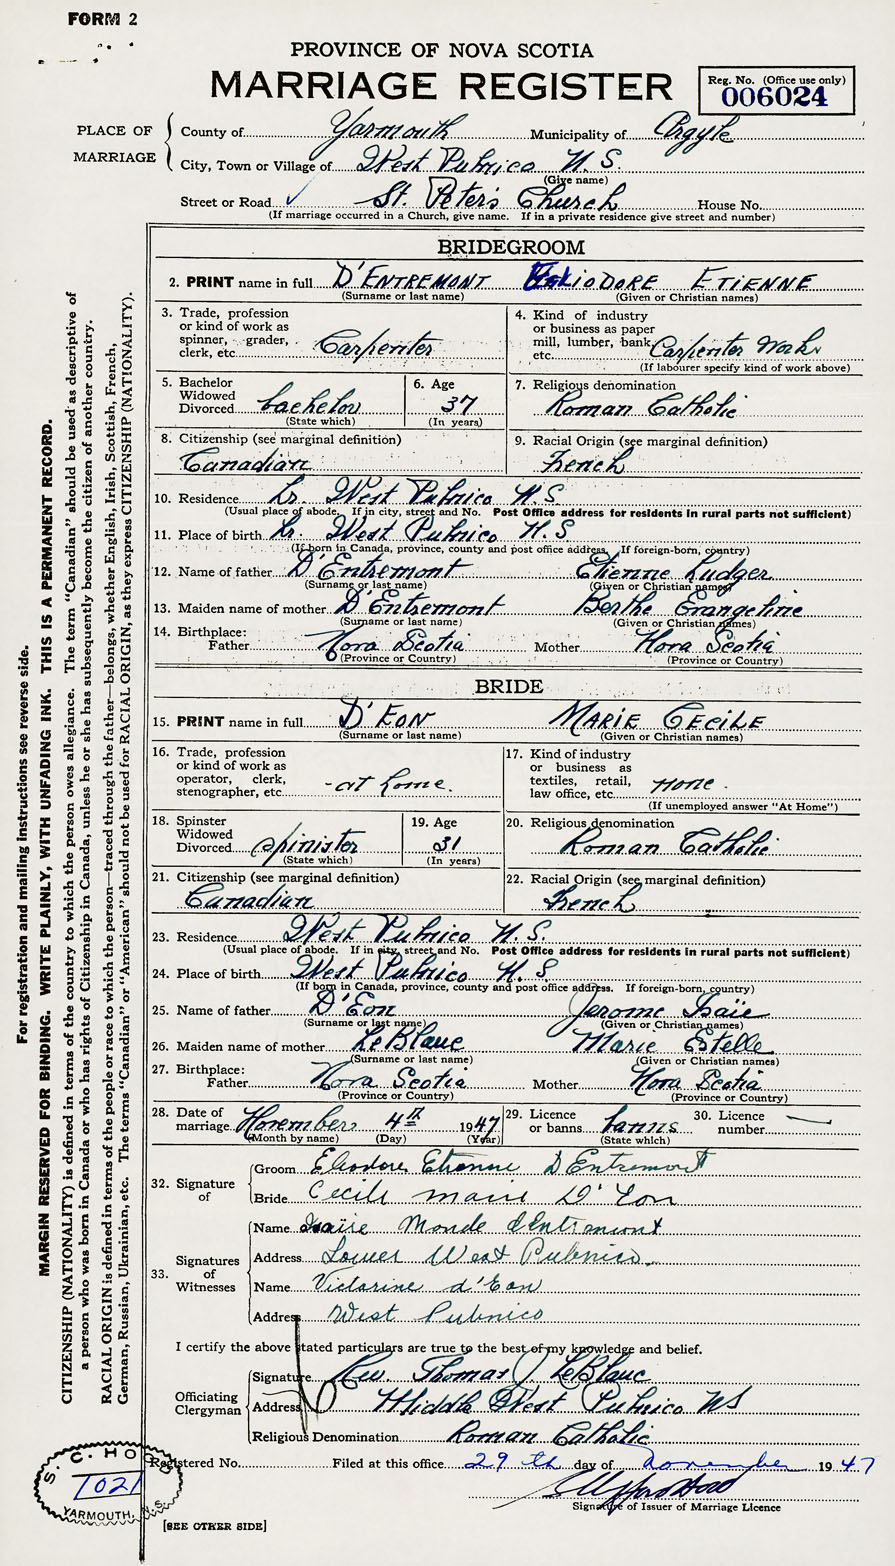 FORM 2
PROVINCE OF NOVA SCOTIA
MARRIAGE REGISTER
Reg. No. (Office use only)
006024
PLACE OF MARRIAGE
County of Yarmouth Municipality of Argyle
City, Town or Village of West Pubnico N.S.
(Give name)
Street or Road ✓ St. Peter's Church House No.
(If marriage occurred in a Church, give name. If in a private residence give street and number)
BRIDEGROOM
2. PRINT name in full D'ENTREMONT ELIODORE ETIENNE
(Surname or last name) (Given or Christian names)
3. Trade, profession or kind of work as spinner, grader, clerk, etc. Carpenter
4. Kind of industry or business as paper mill, lumber, bank, etc. Carpenter Work
(If labourer specify kind of work above)
5. Bachelor Widowed Divorced bachelor
(State which)
6. Age 37
(In years)
7. Religious denomination
Roman Catholic
8. Citizenship (see marginal definition)
Canadian
9. Racial Origin (see marginal definition)
French
10. Residence Lr. West Pubnico N.S.
(Usual place of abode. If in city, street and No. Post Office address for residents in rural parts not sufficient)
11. Place of birth Lr. West Pubnico N.S
(If born in Canada, province, county and post office address. If foreign-born, country)
12. Name of father D'Entremont Etienne Ludger
(Surname or last name) (Given or Christian names)
13. Maiden name of mother D'Entremont Berthe Evangeline
(Surname or last name) (Given or Christian names)
14. Birthplace:
Father Nova Scotia Mother Nova Scotia
(Province or Country) (Province or Country)
BRIDE
15. PRINT name in full D'EON MARIE CECILE
(Surname or last name) (Given or Christian names)
16. Trade, profession or kind of work as operator, clerk, stenographer, etc. -at home.
17. Kind of industry or business as textiles, retail, law office, etc. none.
(If unemployed answer "At Home")
18. Spinster Widowed Divorced spinister
(State which)
19. Age 31
(In years)
20. Religious denomination
Roman Catholic
21. Citizenship (see marginal definition)
Canadian
22. Racial Origin (see marginal definition)
French
23. Residence West Pubnico N.S.
(Usual place of abode. If in city, street and No. Post Office address for residents in rural parts not sufficient)
24. Place of birth West Pubnico N.S
(If born in Canada, province, county and post office address. If foreign-born, country)
25. Name of father D'Eon Jerome Isaïe
(Surname or last name) (Given or Christian names)
26. Maiden name of mother LeBlanc Marie Estelle
(Surname or last name) (Given or Christian names)
27. Birthplace:
Father Nova Scotia Mother Nova Scotia
(Province or Country) (Province or Country)
28. Date of marriage November 4th 1947
(Month by name) (Day) (Year)
29. Licence or banns banns
(State which)
30. Licence number —
32. Signature of
Groom Eliodore Etienne D'Entremont
Bride Cecile Marie D'Eon
33. Signatures of Witnesses
Name Monde d'Entremont
Address Lower West Pubnico
Name Victorine d'Eon
Address West Pubnico
I certify the above stated particulars are true to the best of my knowledge and belief.
Officiating Clergyman
Signature Rev. Thomas J. LeBlanc
Address Middle West Pubnico NS
Religious Denomination Roman Catholic
Registered No. Filed at this office 29th day of November 1947
Signature of Issuer of Marriage Licence
S. C. HOOD
1021
YARMOUTH, N.S.
[SEE OTHER SIDE]
For registration and mailing instructions see reverse side.
MARGIN RESERVED FOR BINDING. WRITE PLAINLY, WITH UNFADING INK. THIS IS A PERMANENT RECORD.
CITIZENSHIP (NATIONALITY) is defined in terms of the country to which the person owes allegiance. The term "Canadian" should be used as descriptive of
a person who was born in Canada or who has rights of Citizenship in Canada, unless he or she has subsequently become the citizen of another country.
RACIAL ORIGIN is defined in terms of the people or race to which the person—traced through the father—belongs, whether English, Irish, Scottish, French,
German, Russian, Ukrainian, etc. The terms "Canadian" or "American" should not be used for RACIAL ORIGIN, as they express CITIZENSHIP (NATIONALITY).